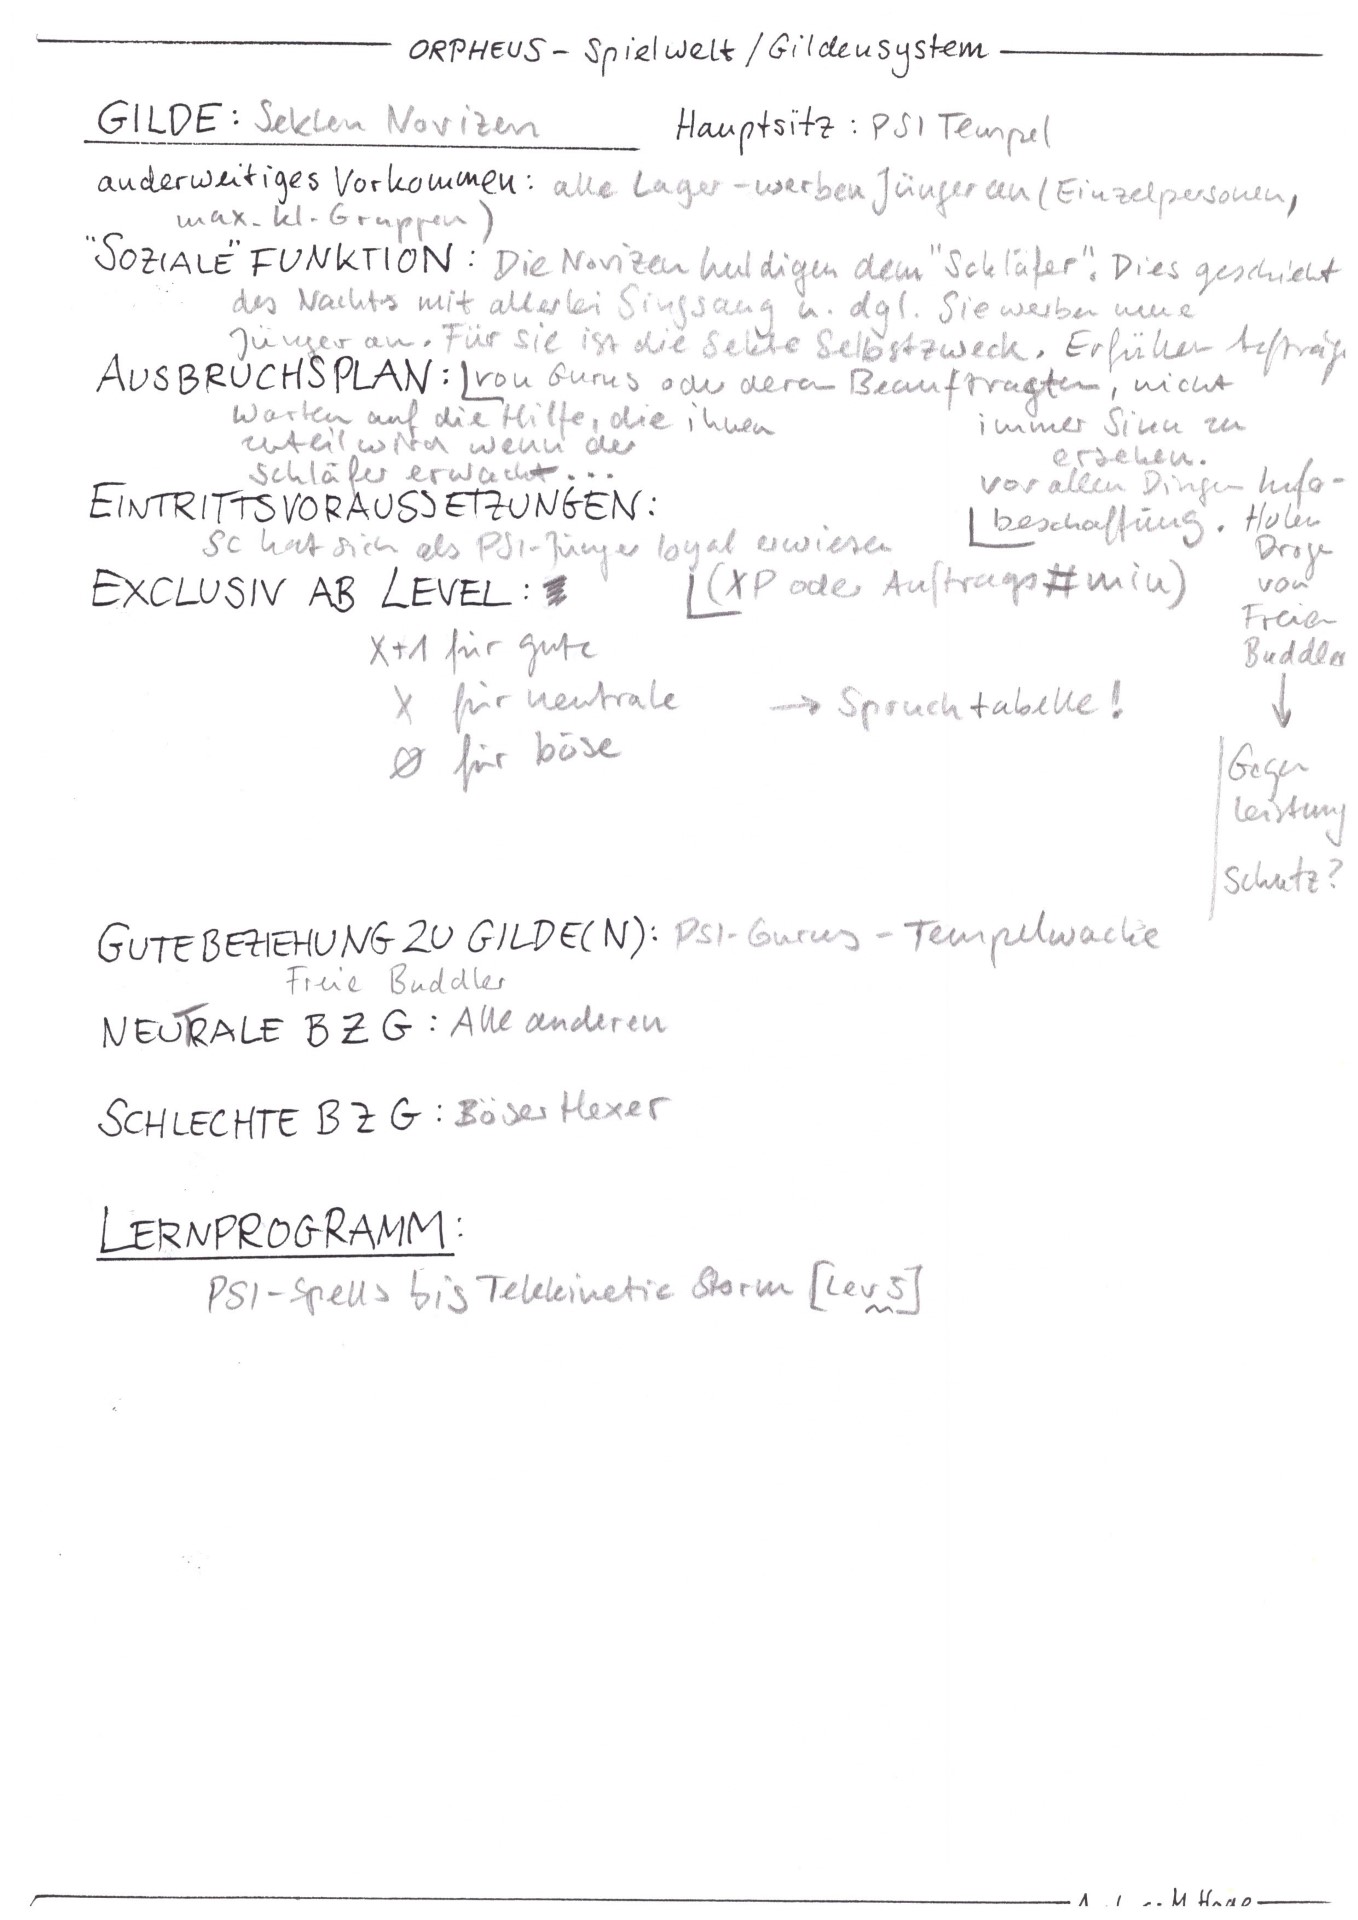 ORPHEUS - Spielwelt / Gildensystem
GILDE: Sekten Novizen
Hauptsitz: PSI Tempel
anderweitiges Vorkommen: alle Lager - werben Jünger an (Einzelpersonen,
max. kl. Gruppen)
"SOZIALE" FUNKTION: Die Novizen huldigen dem "Schläfer". Dies geschieht
des Nachts mit allerlei Singsang u. dgl. Sie werben neue
Jünger an. Für sie ist die Sekte Selbstzweck. Erfüllen Aufträge
von Gurus oder deren Beauftragten, nicht
immer Sinn zu
ersehen.
vor allen Dingen Info-
beschaffung. Holen
Droge
von
Freien
Buddler
↓
Gegen
leistung
Schutz?
AUSBRUCHSPLAN:
Warten auf die Hilfe, die ihnen
zuteil wird wenn der
Schläfer erwacht...
EINTRITTSVORAUSSETZUNGEN:
SC hat sich als PSI-Jünger loyal erwiesen
(XP oder Auftrags#min)
EXCLUSIV AB LEVEL:
X+1 für gute
X für neutrale → Spruchtabelle!
Ø für böse
GUTE BEZIEHUNG ZU GILDE(N): PSI-Gurus - Tempelwache
Freie Buddler
NEUTRALE BZG: Alle anderen
SCHLECHTE BZG: Böser Hexer
LERNPROGRAMM:
PSI-Spells bis Telekinetic Storm [Lev 5]